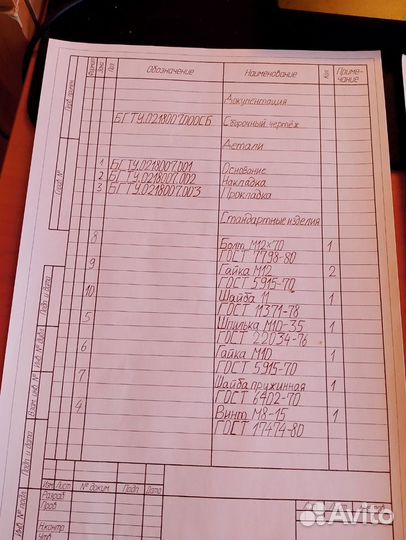 Формат
Зона
Поз
Обозначение
Наименование
Кол
Приме-
чание
Документация
БГТУ.0218007.000СБ Сборочный чертёж
Детали
1 БГТУ.0218007.001 Основание
2 БГТУ.0218007.002 Накладка
3 БГТУ.0218007.003 Прокладка
Стандартные изделия
8 Болт М12×70 1
ГОСТ 7798-80
9 Гайка М12 2
ГОСТ 5915-70
10 Шайба 11 1
ГОСТ 11371-78
5 Шпилька М10-35 1
ГОСТ 22034-76
6 Гайка М10 1
ГОСТ 5915-70
7 Шайба пружинная 1
ГОСТ 6402-70
4 Винт М8-15 1
ГОСТ 17474-80
Справ. №
Подп и дата
Взам. инв №
Инв № дубл.
Подп и дата
Инв № подл
Изм Лист № докум Подп Дата
Разраб
Пров
Н.контр
Утв
Avito